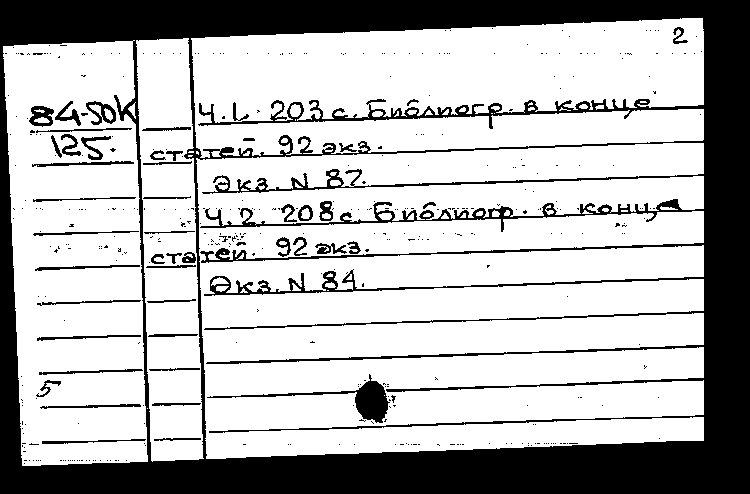 2
84-50К
125.
Ч.1. 203 с. Библиогр. в конце
статей. 92 экз.
Экз. N 87.
Ч.2. 208 с. Библиогр. в конце
статей. 92 экз.
Экз. N 84.
5